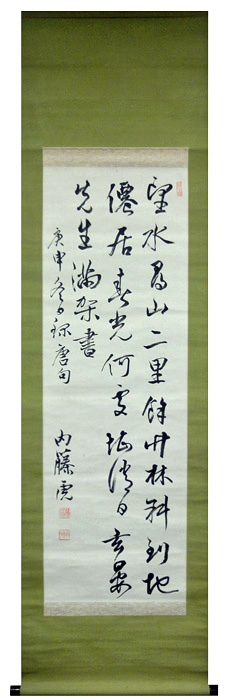 望水尋山二里餘竹林斜到地
僊居春光何處堪消日玄晏
先生滿架書
庚申冬日録唐句
内藤虎